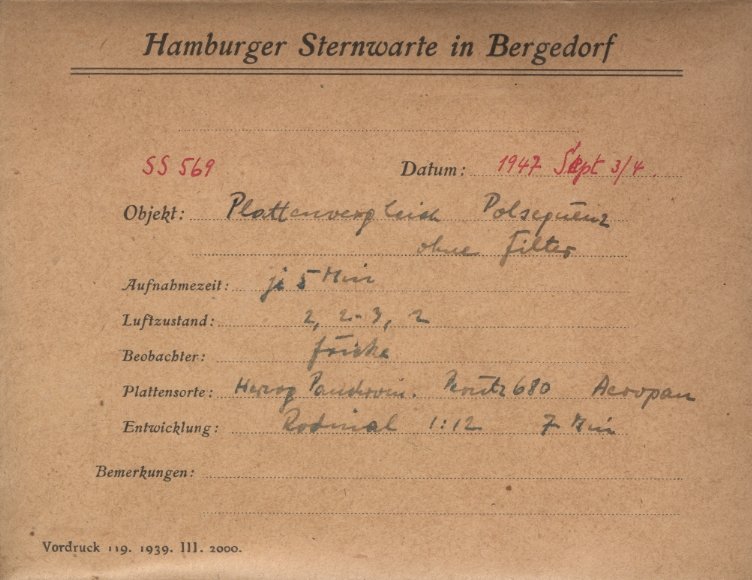 Hamburger Sternwarte in Bergedorf
SS 569 Datum: 1947 Sept 3/4
Objekt: Plattenvergleich Polsequenz
ohne Filter
Aufnahmezeit: je 5 Min
Luftzustand: 2, 2-3, 2
Beobachter: Fricke
Plattensorte: Herzog Panchrom. 680 Aeropan
Entwicklung: Rodinal 1:12 7 Min
Bemerkungen:
Vordruck 119. 1939. III. 2000.